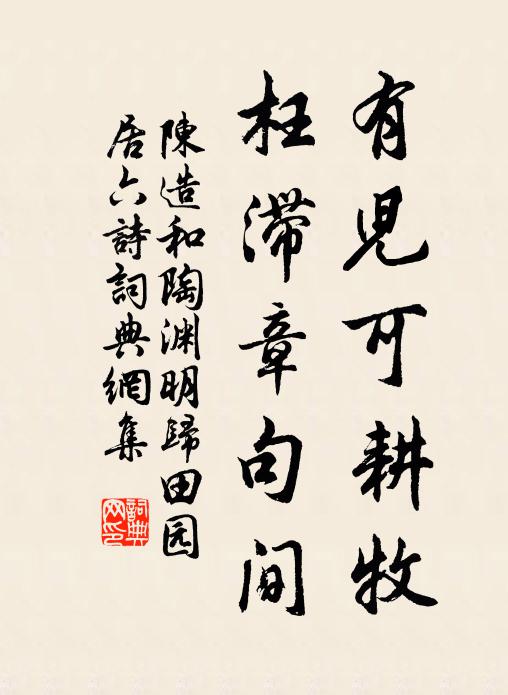 有児可耕牧
枉滞章句間
陳造和陶渊明歸田园
居六詩詞典網集
詞典
网印